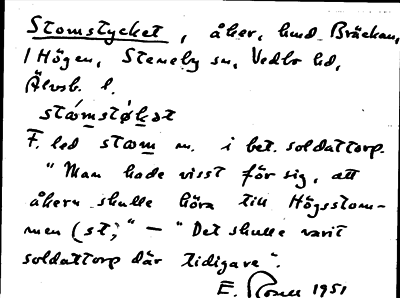 Stomstycket, åker, hmd Bräckan,
1 Högen, Steneby sn, Vedbo hd,
Älvsb. l.
stɷ́mstø̀kət
F. led stɷm m. i bet. soldattorp.
"Man hade visst för sig, att
åkern skulle höra till Högsstom-
men (st;" — "Det skulle varit
soldattorp där tidigare".
E. 1951